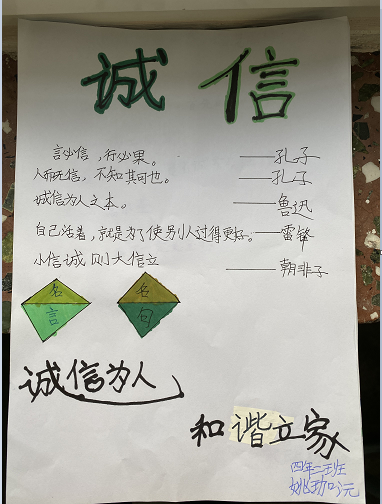 诚信
言必信，行必果。——孔子
人而无信，不知其可也。——孔子
诚信为人之本。——鲁迅
自己活着，就是为了使别人过得更好。——雷锋
小信诚则大信立——朝非子
名言
名句
诚信为人
和谐立家
四年二班
姚